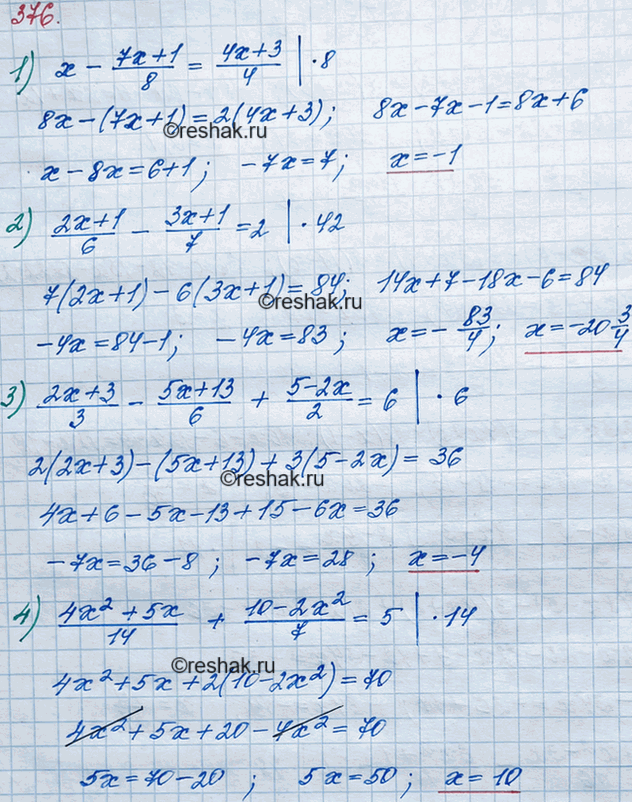 376.
1) x − (7x+1)/8 = (4x+3)/4 | · 8
8x−(7x+1)=2(4x+3); 8x−7x−1=8x+6
©reshak.ru
x−8x=6+1; −7x=7; x=−1
2) (2x+1)/6 − (3x+1)/7 = 2 | · 42
7(2x+1)−6(3x+1)=84; 14x+7−18x−6=84
©reshak.ru
−4x=84−1; −4x=83; x=−83/4; x=−20 3/4
3) (2x+3)/3 − (5x+13)/6 + (5−2x)/2 = 6 | · 6
2(2x+3)−(5x+13)+3(5−2x)=36
©reshak.ru
4x+6−5x−13+15−6x=36
−7x=36−8; −7x=28; x=−4
4) (4x²+5x)/14 + (10−2x²)/7 = 5 | · 14
©reshak.ru
4x²+5x+2(10−2x²)=70
4x²+5x+20−4x²=70
5x=70−20; 5x=50; x=10